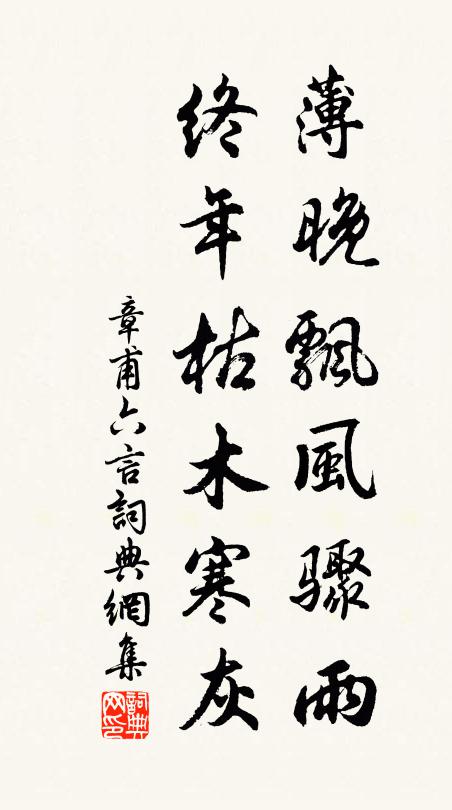 薄晚飄風驟雨
終年枯木寒灰
章甫六言詞典網集
詞典网印